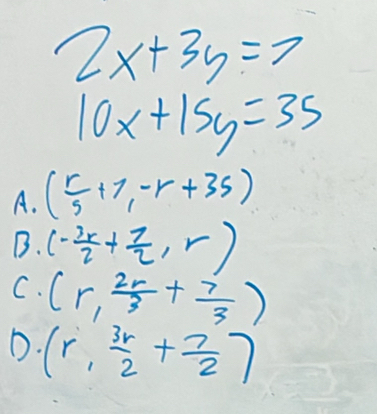 2x+3y=7
10x+15y=35
A. (r/5+7, -r+35)
B. (-3r/2+7/2, r)
C. (r, 2r/3+7/3)
D. (r, 3r/2+7/2)